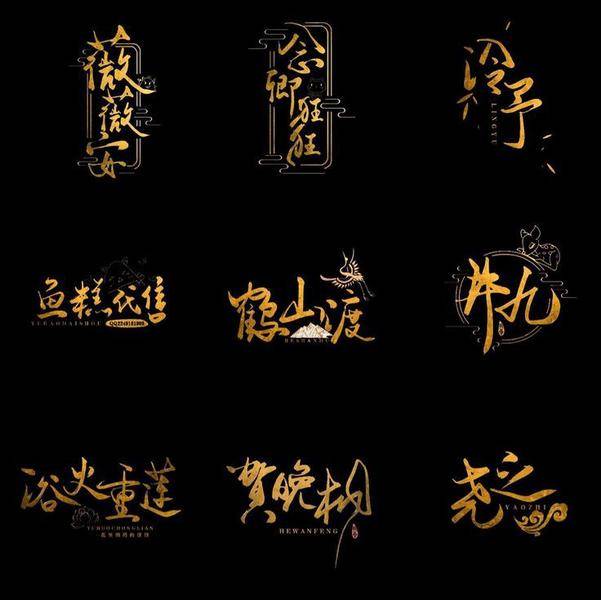 薇薇安
念卿
冷予
LINGYU
鱼糕代售
YUGAODAISHOU
鹤山渡
HESHANDU
井九
浴火重莲
YUHUOCHONGLIAN
贺晚枫
HEWANFENG
尧之
YAOZHI